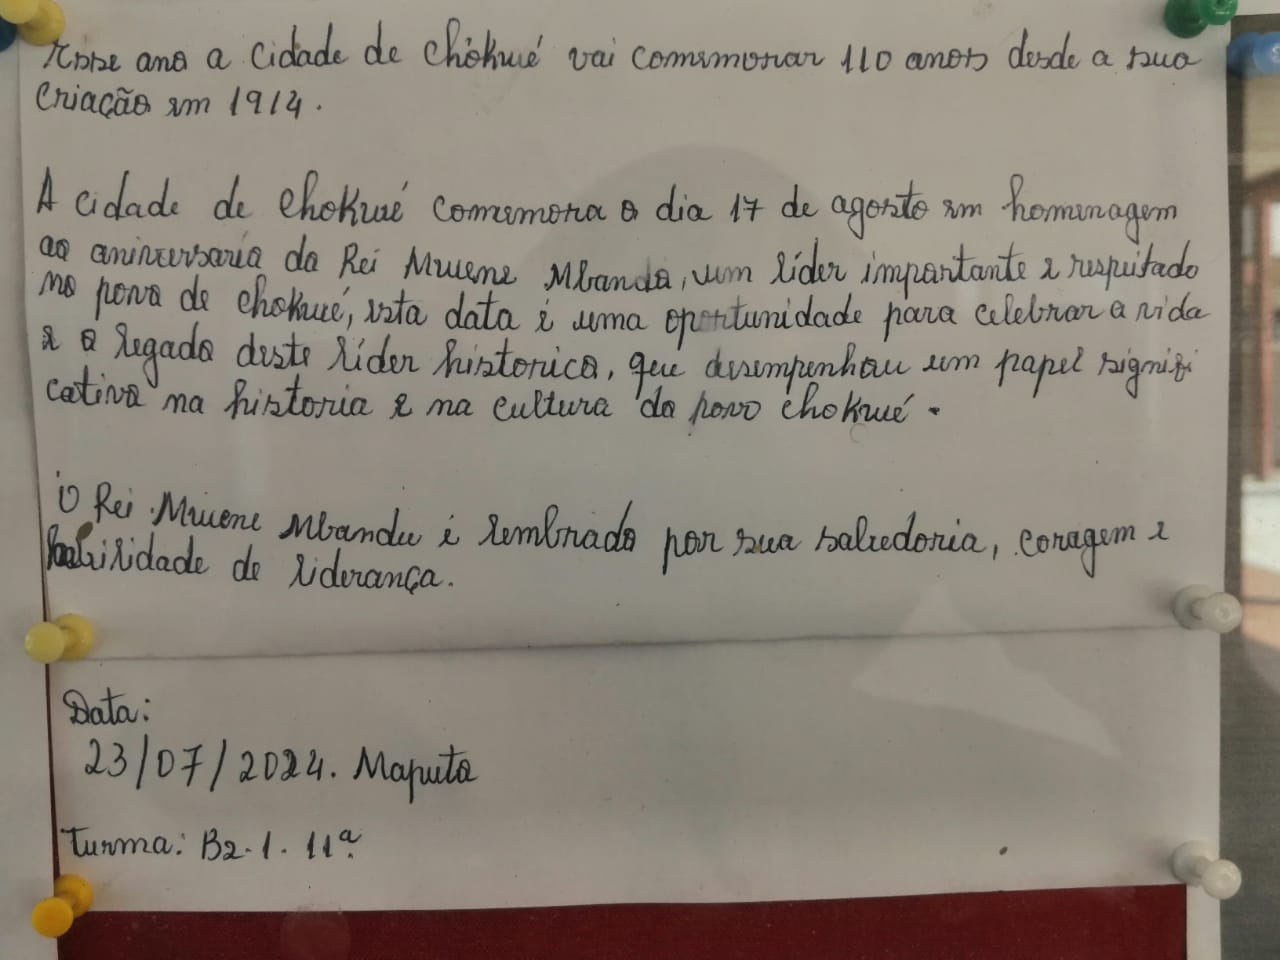 Esse ano a cidade de Chókwé vai comemorar 110 anos desde a sua
criação em 1914.
A cidade de Chokwé comemora o dia 17 de agosto em homenagem
ao aniversario do Rei Mwene Mbanda, um líder importante e respeitado
no povo de chokwé, esta data é uma oportunidade para celebrar a vida
e o legado deste líder historico, que desempenhou um papel signifi
cativo na historia e na cultura do povo chokwé.
O Rei Mwene Mbandu é lembrado por sua sabedoria, coragem e
habilidade de liderança.
Data:
23/07/2024. Maputo
Turma: B2.1. 11ª